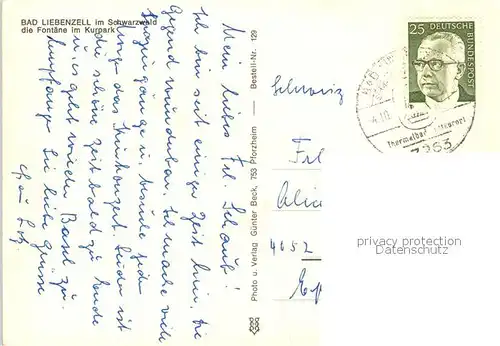 BAD LIEBENZELL im Schwarzwald
die Fontäne im Kurpark
Mein liebes Frl. Schaub!
Ich bin seit einiger Zeit hier. Die
Gegend wunderbar. Ich mache viele
Spaziergänge u. besuche jeden
Morgen das Kurkonzert. Leider ist
die schöne Zeit bald zu Ende
u. es geht wieder Basel zu.
Empfangen Sie liebe Grüsse
Photo u. Verlag Günter Beck, 753 Pforzheim — Bestell-Nr. 129
25
DEUTSCHE
BUNDESPOST
BAD
Thermalbad
Schweiz
Frl
Alic
4052
privacy protection
Datenschutz